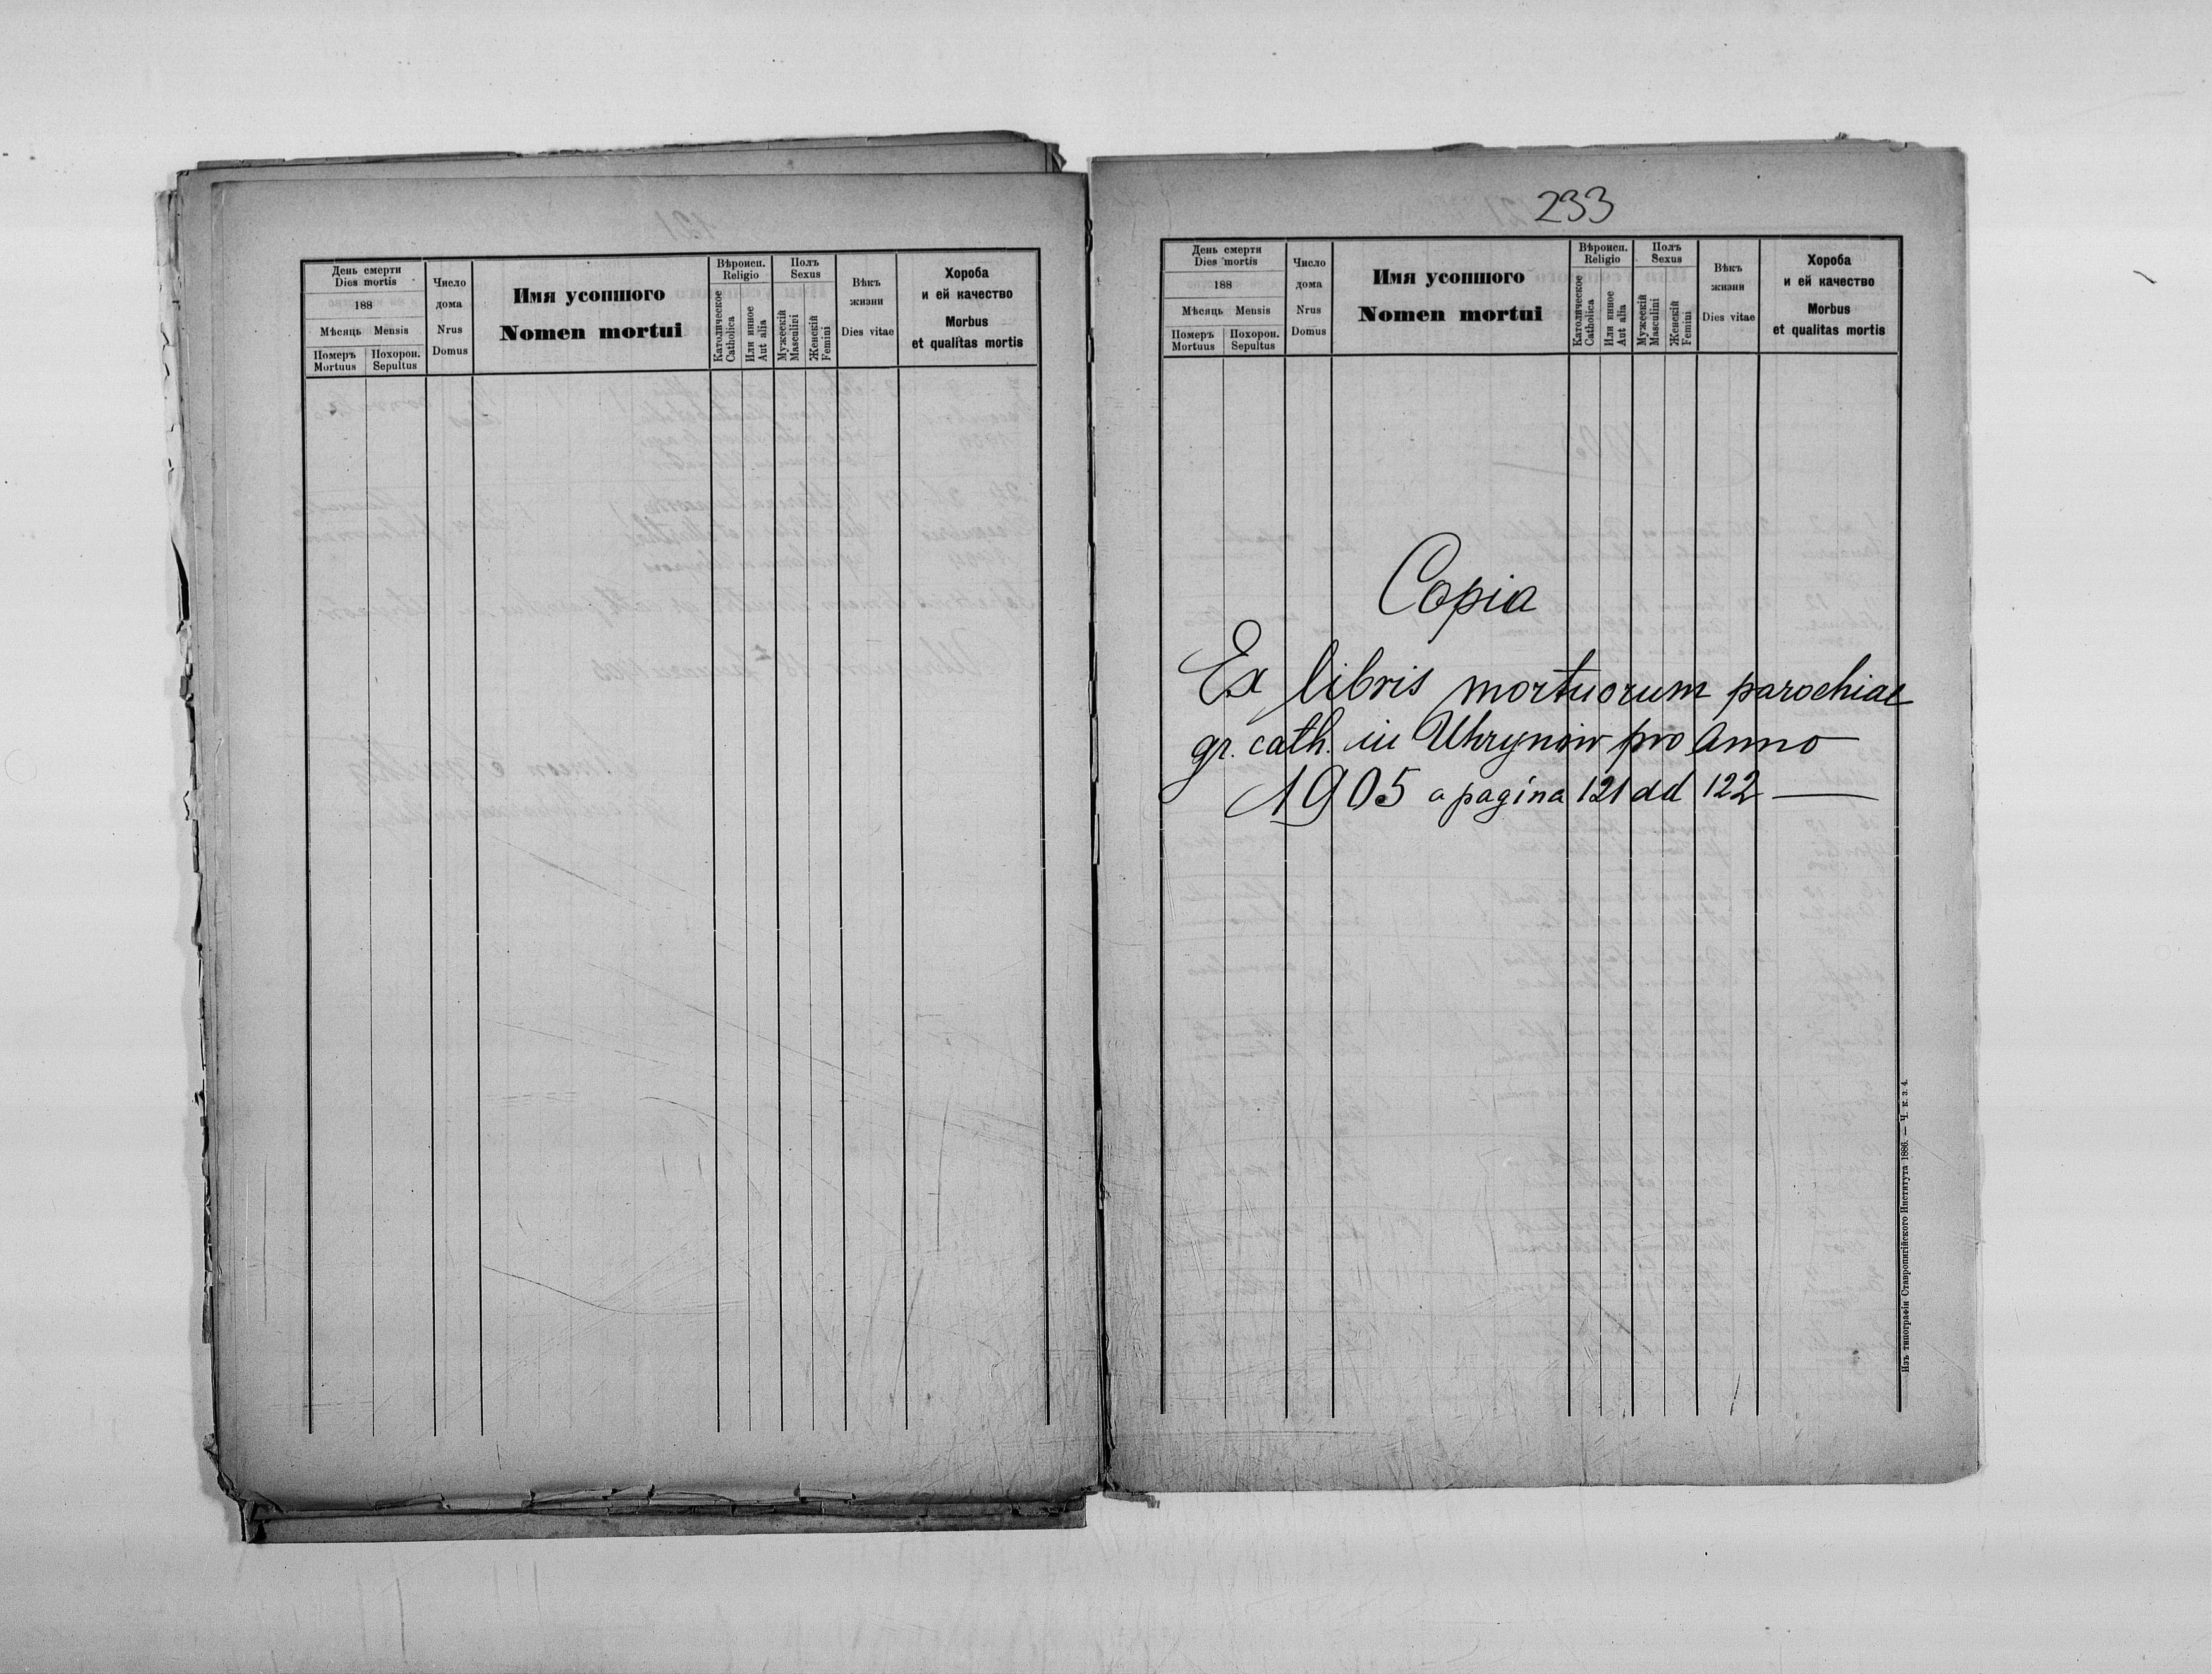 День смерти
Dies mortis
188
Мѣсяць Mensis
Померъ
Mortuus
Похорон.
Sepultus
Число
дома
Nrus
Domus
Имя усопшого
Nomen mortui
Вѣроисп.
Religio
Католическое
Catholica
Или инное
Aut alia
Полъ
Sexus
Мужескій
Masculini
Женскій
Femini
Вѣкъ
жизни
Dies vitae
Хороба
и ей качество
Morbus
et qualitas mortis
233
День смерти
Dies mortis
188
Мѣсяць Mensis
Померъ
Mortuus
Похорон.
Sepultus
Число
дома
Nrus
Domus
Имя усопшого
Nomen mortui
Вѣроисп.
Religio
Католическое
Catholica
Или инное
Aut alia
Полъ
Sexus
Мужескій
Masculini
Женскій
Femini
Вѣкъ
жизни
Dies vitae
Хороба
и ей качество
Morbus
et qualitas mortis
Copia
Ex libris mortuorum parochiae
gr. cath. in Uhrynów pro Anno
1905 a pagina 121 ad 122
Изъ типографіи Ставропигійского Института 1886. — Ч. к. з. 4.